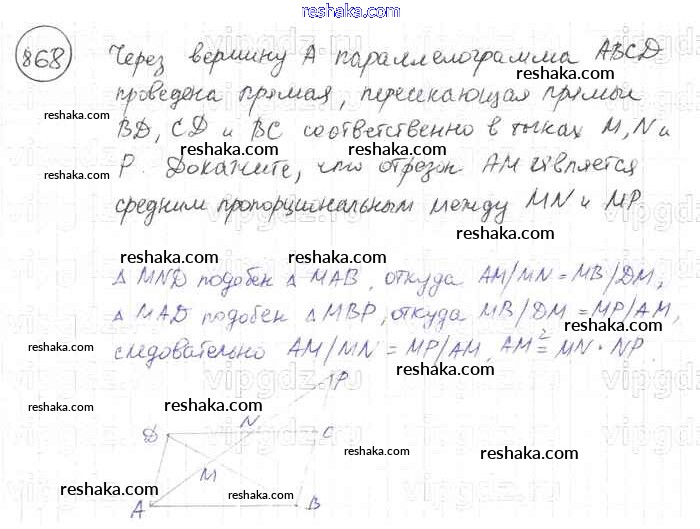 reshaka.com
868 Через вершину А параллелограмма ABCD
reshaka.com
проведена прямая, пересекающая прямые
reshaka.com
reshaka.com
BD, CD и BC соответственно в точках M, N и
reshaka.com
P. Докажите, что отрезок AM является
reshaka.com
reshaka.com
средним пропорциональным между MN и MP
reshaka.com
reshaka.com reshaka.com
Δ MND подобен Δ MAB, откуда AM/MN = MB/DM,
Δ MAD подобен Δ MBP, откуда MB/DM = MP/AM,
reshaka.com
reshaka.com
следовательно AM/MN = MP/AM, AM² = MN · NP.
reshaka.com
P
reshaka.com reshaka.com
D N C
reshaka.com
M
reshaka.com reshaka.com
A B
reshaka.com